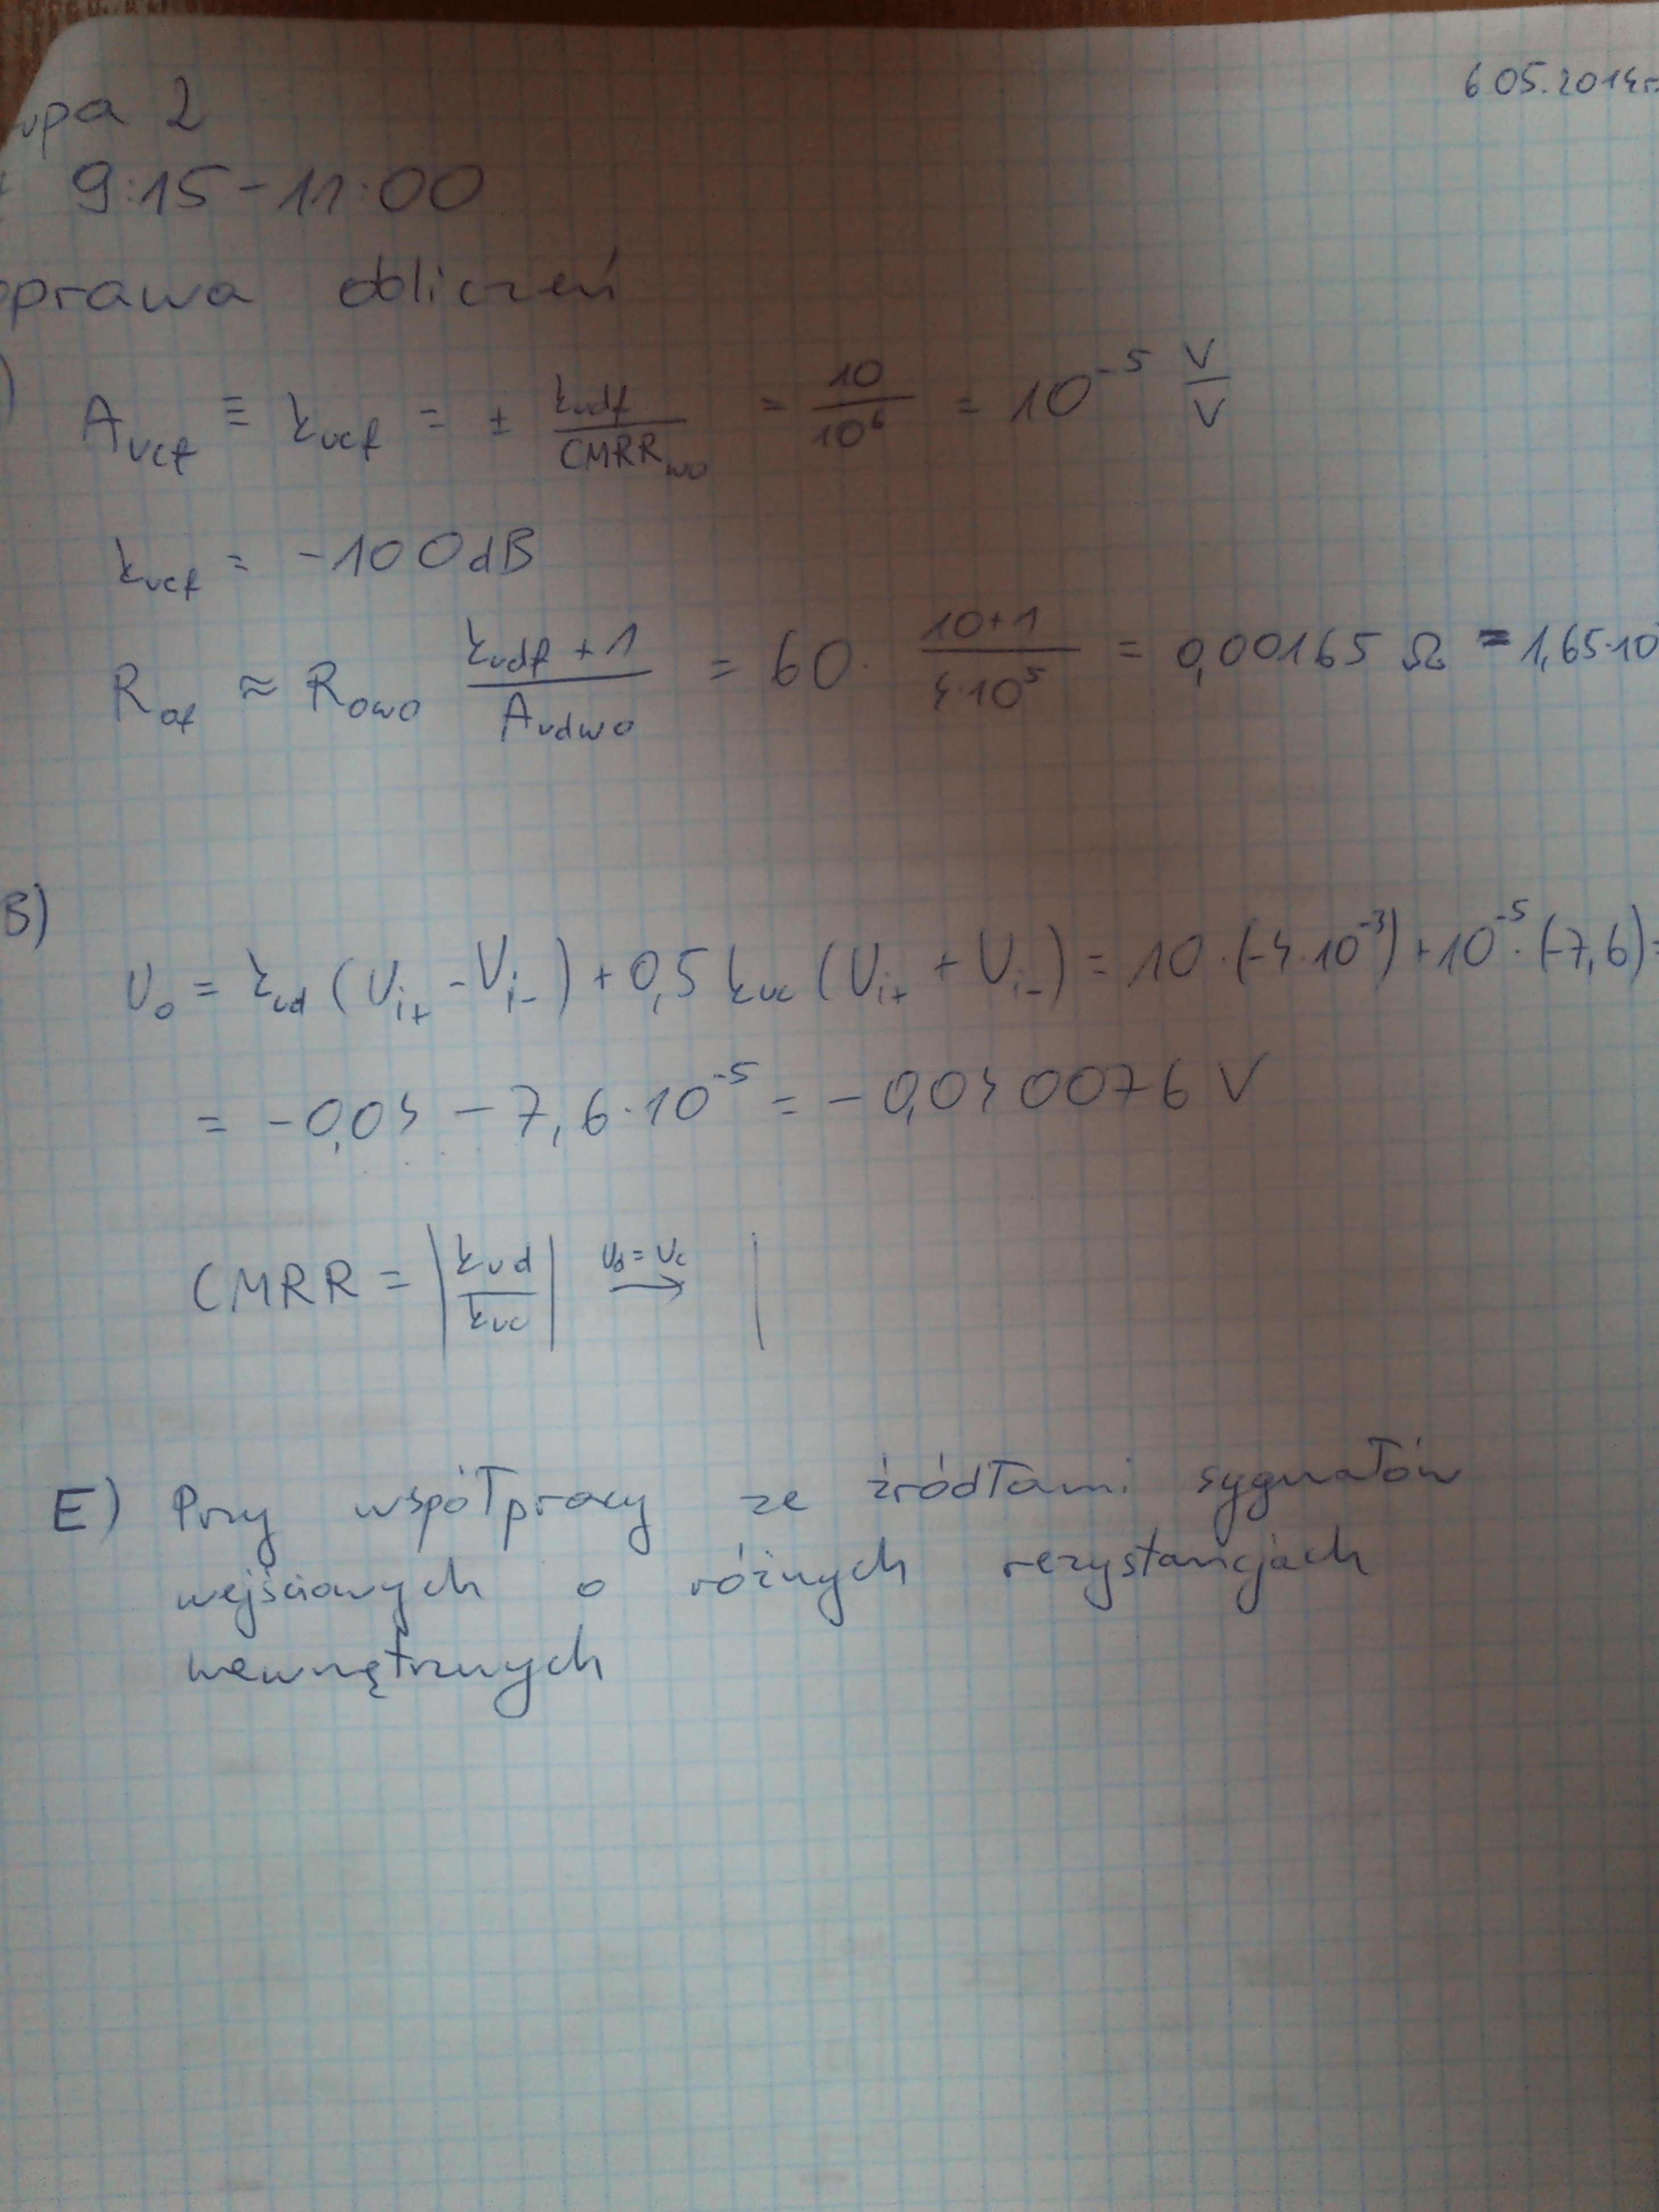 6.05.2014r.
upa 2
9:15-11:00
oprawa obliczeń
) A_vcf ≡ k_ucf = ± k_udf / CMRR_wo = 10 / 10⁶ = 10⁻⁵ V/V
k_ucf = -100dB
R_of ≈ R_owo (k_udf + 1) / A_vdwo = 60 · (10+1) / (4·10⁵) = 0,00165 Ω = 1,65·10
B)
U_o = k_ud (U_i+ - U_i-) + 0,5 k_uc (U_i+ + U_i-) = 10·(-4·10⁻³) + 10⁻⁵·(-7,6) =
= -0,04 - 7,6·10⁻⁵ = -0,040076 V
CMRR = |k_ud / k_uc| U_d = U_c → |
E) Przy współpracy ze źródłami sygnałów
wejściowych o różnych rezystancjach
wewnętrznych